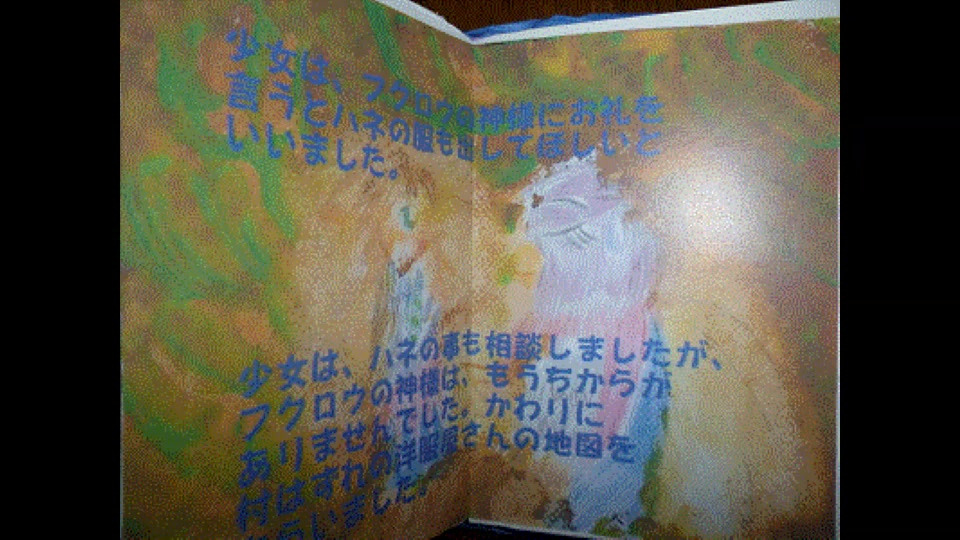 少女は、フクロウの神様にお礼を
言うとハネの服も出してほしいと
いいました。
少女は、ハネの事も相談しましたが、
フクロウの神様は、もうちからが
ありませんでした。かわりに
村はずれの洋服屋さんの地図を
もらいました。